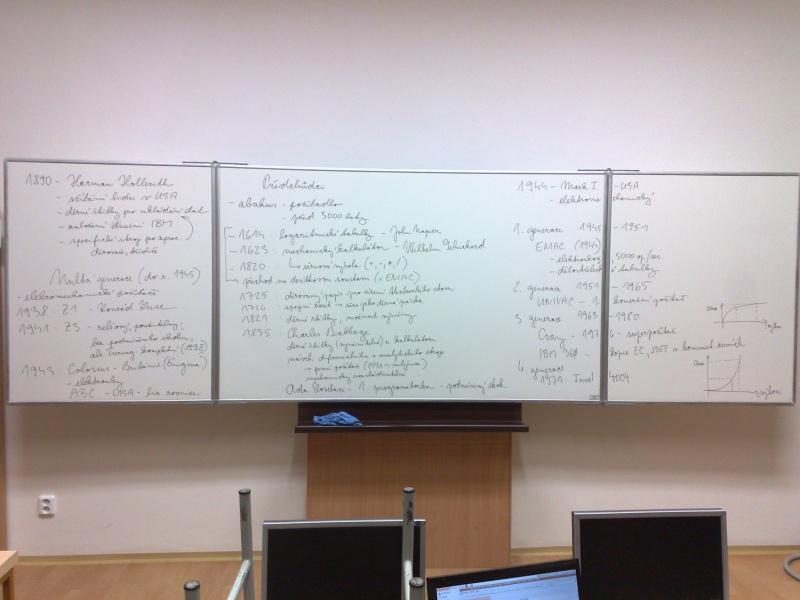 1890 - Herman Hollerith
- sčítání lidu v USA
- děrné štítky pro ukládání dat
- založení dnešní IBM
- specifické stroj pro zprac.
děrované štítky
Nultá generace (do r. 1945)
- elektromechanické počítače
1938 Z1 - Konrad Zuse
1941 - Z3 - reléový, použitelný,
bez podmíněného skoku,
ale Turing-kompletní (1998)
1943 Colossus - Británie (Enigma)
- elektronky
ABC - USA - bin. rovnice
Předchůdci
- abakus - počitadlo
- před 5000 lety
- 1614: logaritmické tabulky - John Napier
- 1623: mechanický kalkulátor - Wilhelm Schickard
- 1820 (+, -, *, /)
- přechod na desítkovou soustavu (x EMAC)
1725 děrovaný papír pro řízení tkalcovského stavu
1726
1821 děrné štítky, možnost výměny
1835 Charles Babbage
děrné štítky (vyměnitelné) u kalkulátoru
návrh diferenčního a analytického stroje
→ první počítač
mechanicky neuskutečnitelné
Ada Lovelace - 1. programátorka - podmíněný skok
1944 - Mark I - USA
1. generace 1945 - 1951
EMAC (1944) 5000 op/sec.
- elektronkový
2. generace 1951 - 1965
UNIVAC - 1. komerční počítač
3. generace 1965 - 1980
Cray - 197 6 - superpočítač
IBM 360 kopie EC, JSEP v komunist. zemích
4. generace
1971 Intel 4004
cena
výkon
cena
výkon